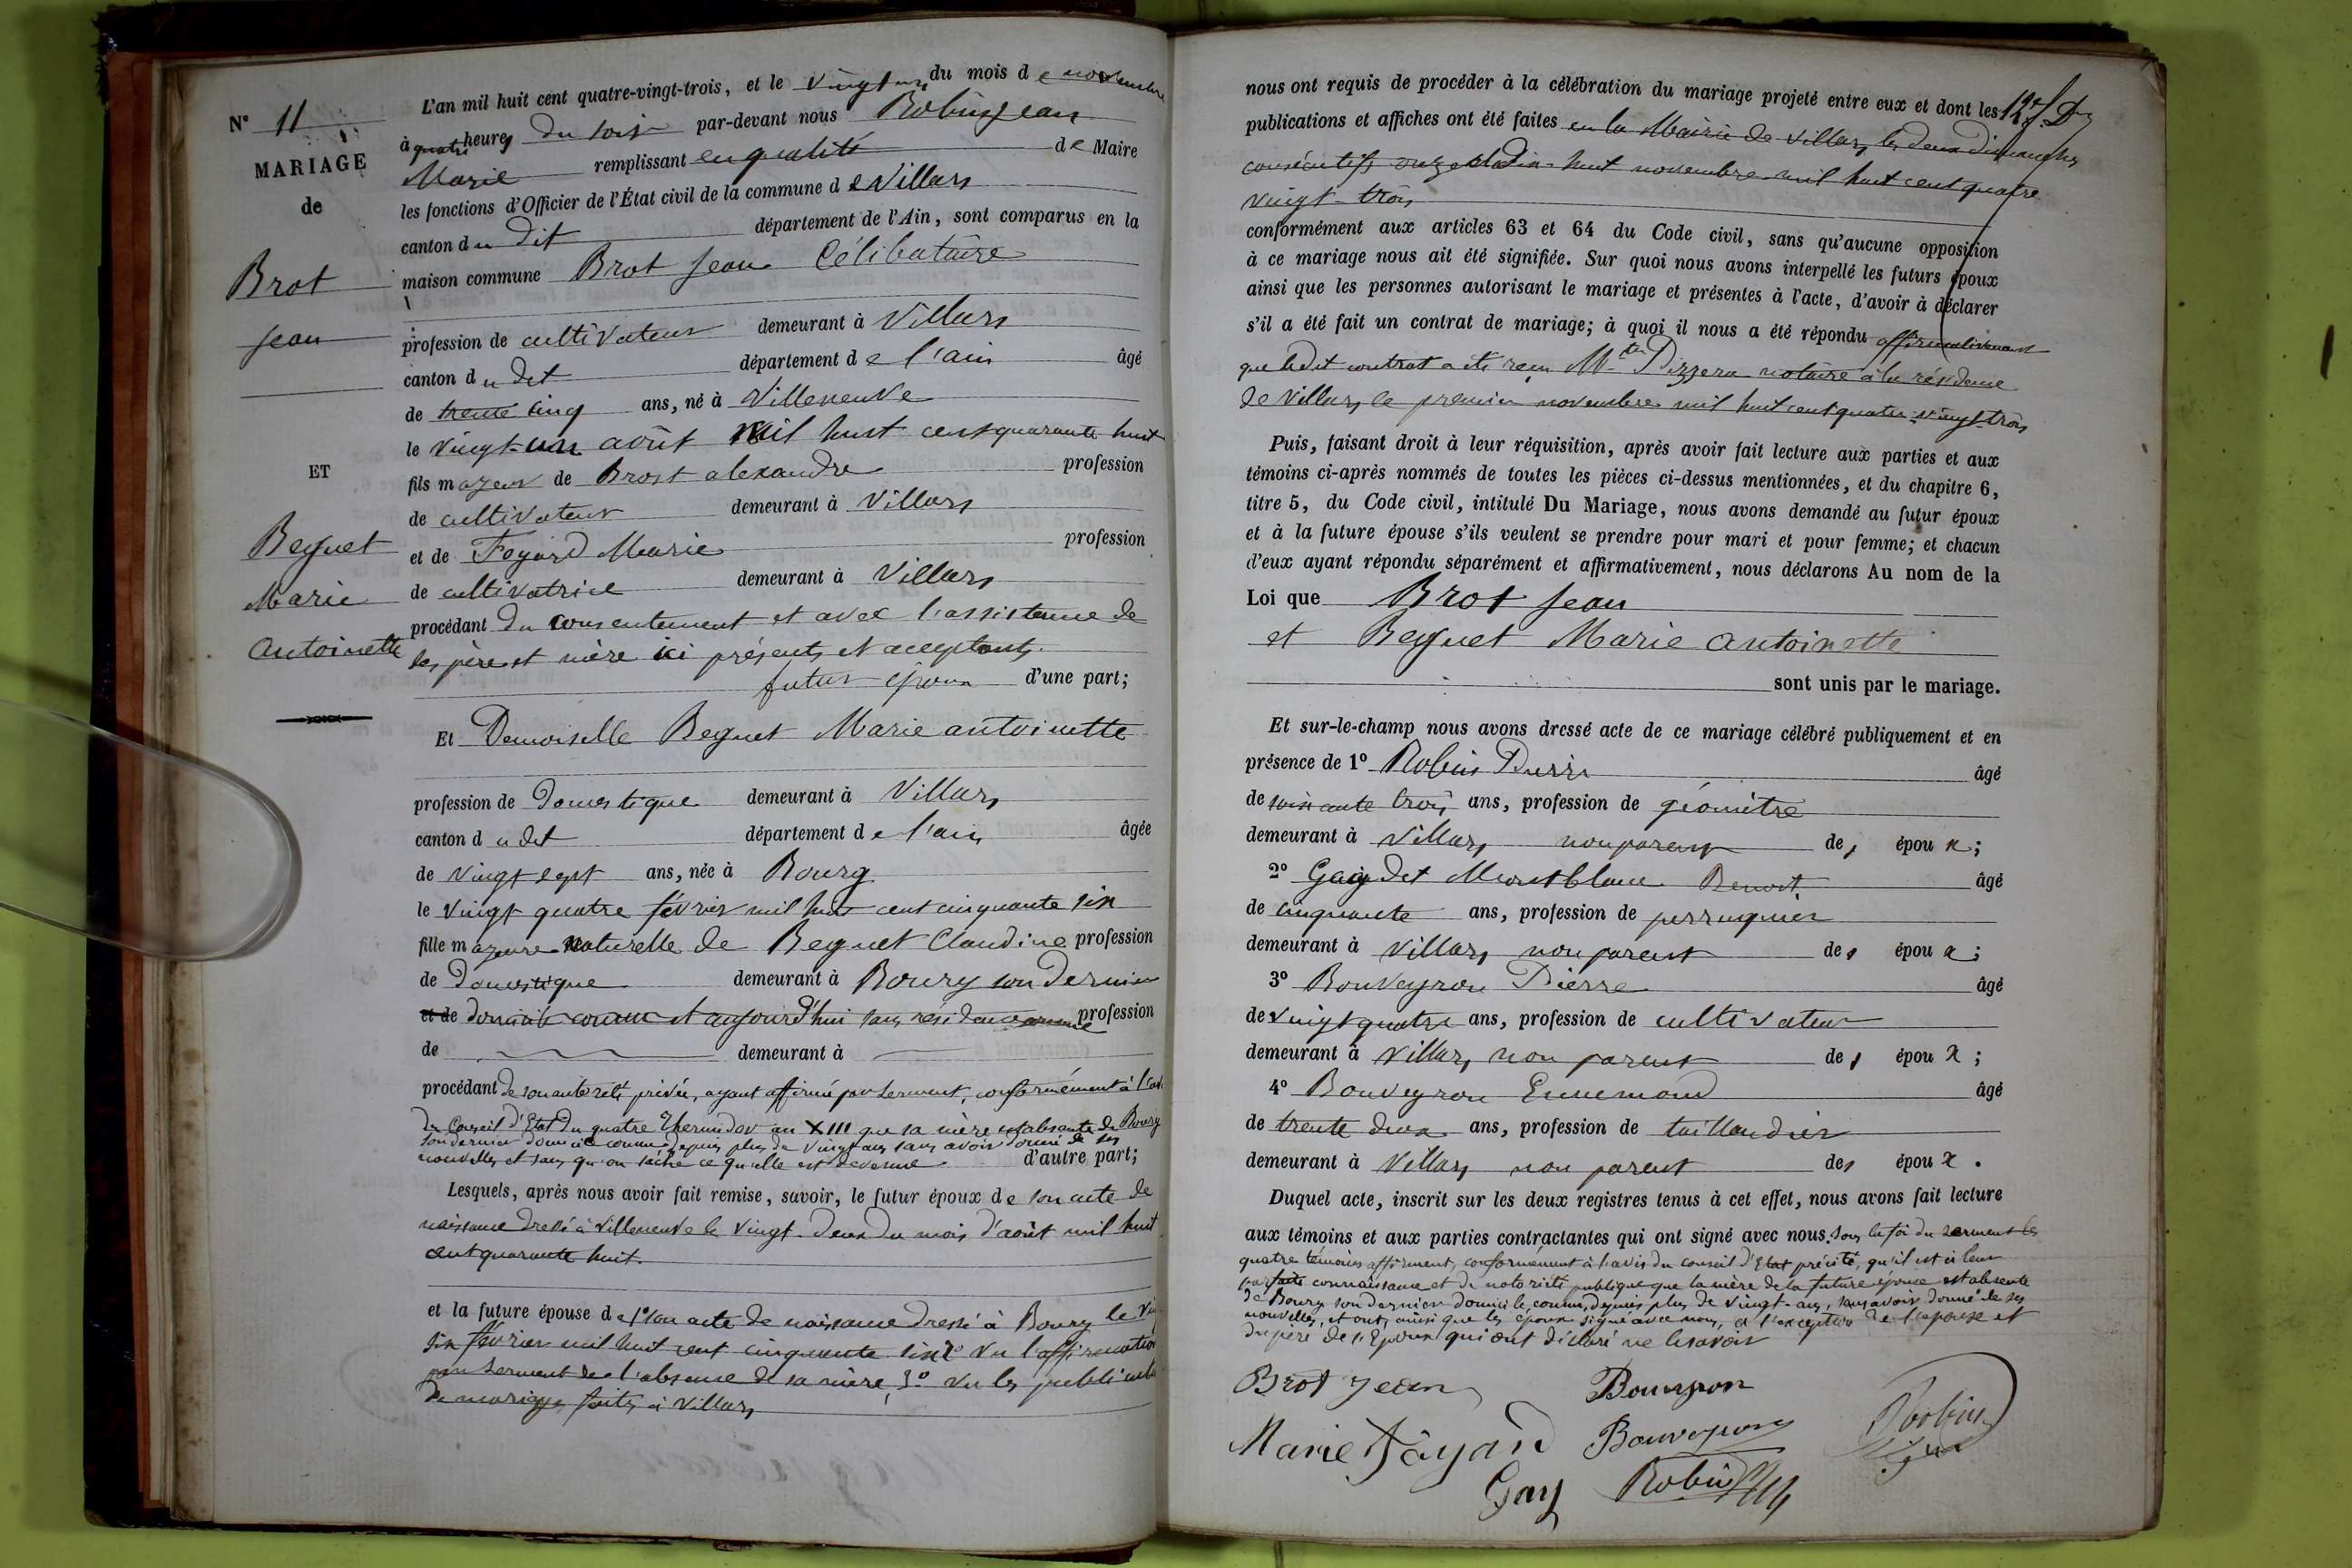 N° 11
MARIAGE
de
Brot
Jean
ET
Beguet
Marie
Antoinette
L'an mil huit cent quatre-vingt-trois, et le du mois de novembre
à quatre heures du soir par-devant nous Robin Jean
Marie remplissant en qualité de Maire
les fonctions d'Officier de l'État civil de la commune de Villars
canton du dit département de l'Ain, sont comparus en la
maison commune Brot Jean Célibataire
profession de cultivateur demeurant à Villars
canton du dit département de l'ain âgé
de trente cinq ans, né à Villeneuve
le vingt-un août mil huit cent quarante huit
fils majeur de Brost alexandre profession
de cultivateur demeurant à Villars
et de Fayard Marie profession
de cultivatrice demeurant à Villars
procédant du consentement et avec l'assistance de
ses père et mère ici présents et acceptants.
futur époux d'une part;
Et Demoiselle Beguet Marie antoinette
profession de Domestique demeurant à Villars
canton du dit département de l'ain âgée
de vingt sept ans, née à Bourg
le vingt quatre février mil huit cent cinquante six
fille majeure naturelle de Beguet Claudine profession
de Domestique demeurant à Bourg son dernier
et de domicile connu et aujourd'hui sans résidence connue profession
de demeurant à
procédant de son autorité privée, ayant affirmé par serment, conformément à l'avis
du Conseil d'Etat du quatre Thermidor an XIII que sa mère est absente de Bourg
son dernier domicile connu depuis plus de vingt ans sans avoir donné de ses
nouvelles et sans qu'on sache ce qu'elle est devenue d'autre part;
Lesquels, après nous avoir fait remise, savoir, le futur époux de son acte de
naissance dressé à Villeneuve le vingt-deux du mois d'août mil huit
cent quarante huit.
et la future épouse de 1° son acte de naissance dressé à Bourg le
six février mil huit cent cinquante six 2° vu l'affirmation
par serment de l'absence de sa mère, 3° vu les
de mariage faites à Villars
nous ont requis de procéder à la célébration du mariage projeté entre eux et dont les
publications et affiches ont été faites en la Mairie de Villars, les deux dimanches
consécutifs onze et dix-huit novembre mil huit cent quatre
vingt-trois
conformément aux articles 63 et 64 du Code civil, sans qu'aucune opposition
à ce mariage nous ait été signifiée. Sur quoi nous avons interpellé les futurs époux
ainsi que les personnes autorisant le mariage et présentes à l'acte, d'avoir à déclarer
s'il a été fait un contrat de mariage; à quoi il nous a été répondu affirmativement
que ledit contrat a été reçu Mtre Pizzera notaire à la résidence
de Villars le premier novembre mil huit cent quatre-vingt-trois
Puis, faisant droit à leur réquisition, après avoir fait lecture aux parties et aux
témoins ci-après nommés de toutes les pièces ci-dessus mentionnées, et du chapitre 6,
titre 5, du Code civil, intitulé Du Mariage, nous avons demandé au futur époux
et à la future épouse s'ils veulent se prendre pour mari et pour femme; et chacun
d'eux ayant répondu séparément et affirmativement, nous déclarons Au nom de la
Loi que Brot Jean
et Beguet Marie Antoinette
sont unis par le mariage.
Et sur-le-champ nous avons dressé acte de ce mariage célébré publiquement et en
présence de 1° Robin Pierre âgé
de soixante trois ans, profession de géomètre
demeurant à Villars, non parent des époux;
2° Gay dit Montblanc Benoit âgé
de cinquante ans, profession de perruquier
demeurant à Villars, non parent des époux;
3° Bouveyron Pierre âgé
de vingt quatre ans, profession de cultivateur
demeurant à Villars, non parent des époux;
4° Bouveyron Ennemond âgé
de trente deux ans, profession de taillandier
demeurant à Villars non parent des époux.
Duquel acte, inscrit sur les deux registres tenus à cet effet, nous avons fait lecture
aux témoins et aux parties contractantes qui ont signé avec nous. Sous la foi du serment les
quatre témoins affirment, conformément à l'avis du conseil d'Etat précité, qu'il est à leur
parfaite connaissance et de notoriété publique que la mère de la future épouse est absente
de Bourg son dernier domicile connu, depuis plus de vingt-ans, sans avoir donné de ses
nouvelles, et ont, ainsi que les époux signé avec nous, à l'exception de l'épouse et
du père de l'Epoux qui ont déclaré ne le savoir
Brot Jean
Marie Fayard
Gay
Robin
Robin